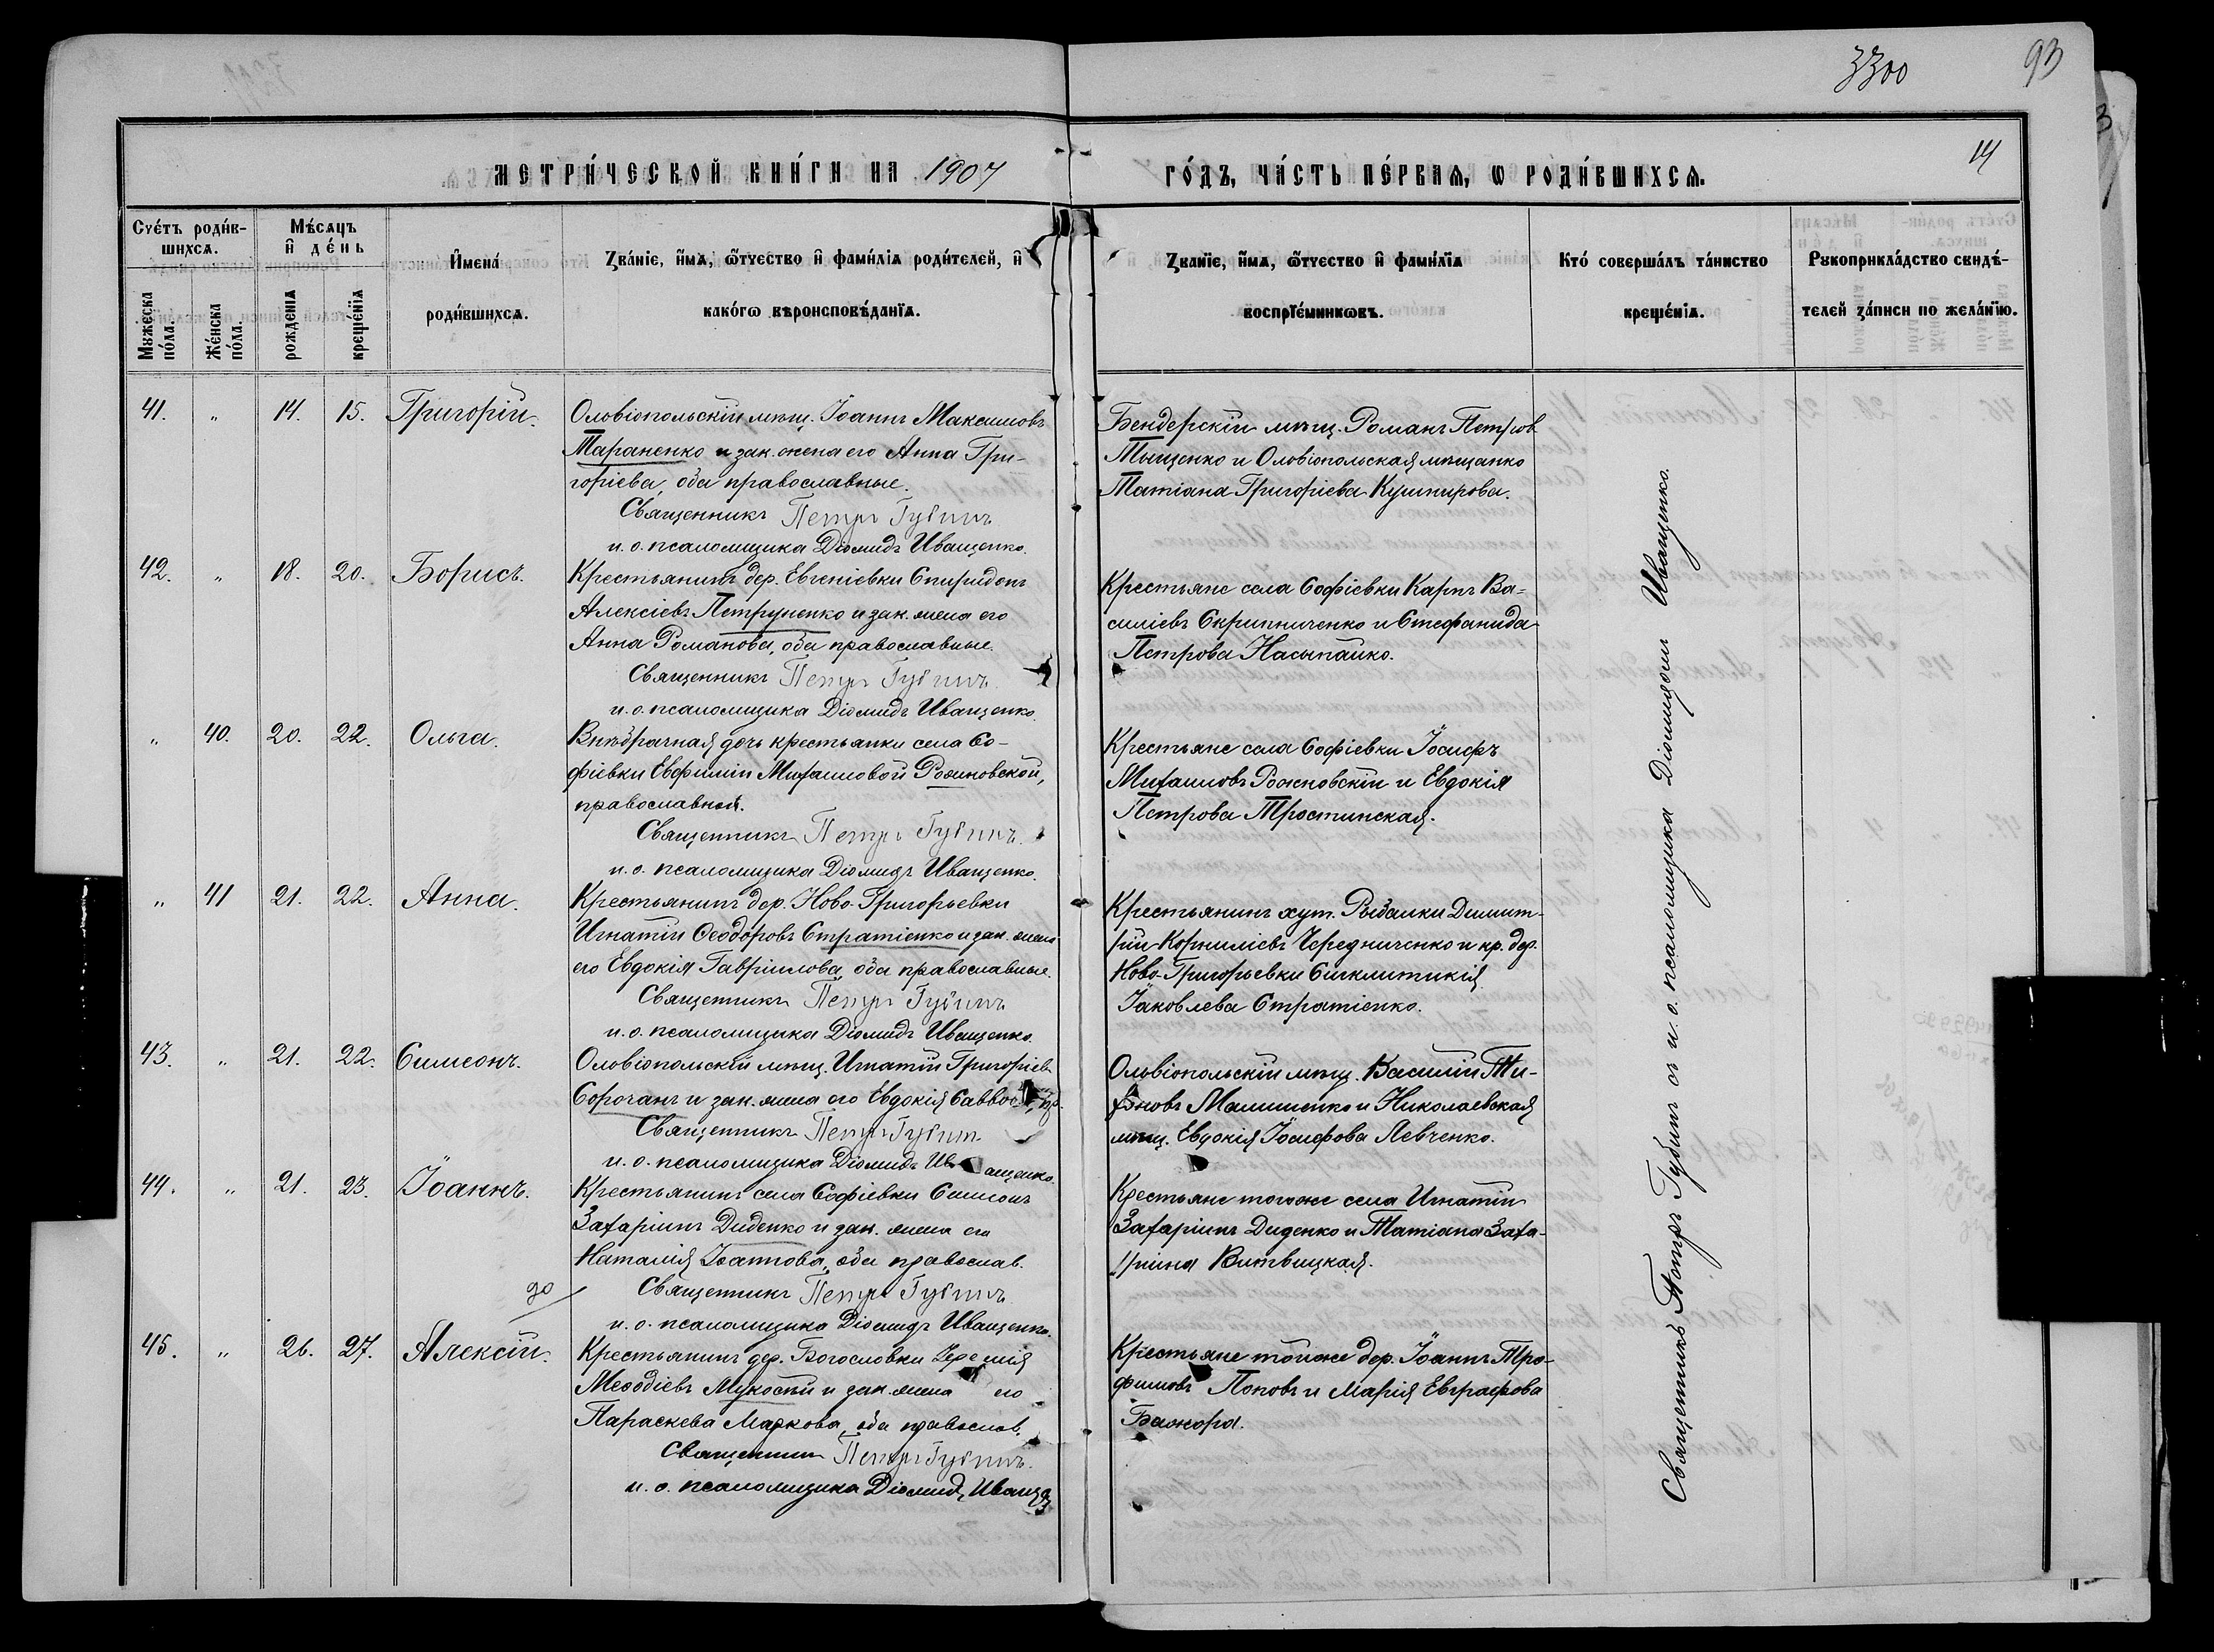 3300
93
14
МЕТРИ́ЧЕСКОЙ КНИ́ГИ НА 1907
ГО́ДЪ, ЧА́СТЬ ПЕ́РВАѦ, Ѡ РОДИ́ВШИХСѦ.
Сче́тъ роди́в-
шихсѧ.
Мꙋжеска по́ла.
Же́нска по́ла.
Мѣ́сѧцъ
и҆ де́нь
рожденїѧ
креще́нїѧ
И҆мена́
роди́вшихсѧ.
Зва́нїе, и҆́мѧ, ѻ҆́тчество и҆ фами́лїѧ роди́телей, и҆
како́гѡ вѣроисповѣ́данїѧ.
Званїе, и҆́мѧ, ѻ҆́тчество и҆ фами́лїѧ
воспрїе́мникѡвъ.
Кто́ соверша́лъ та́инство
креще́нїѧ.
Рꙋкоприкла́дство свидѣ́-
телей за́писи по жела́нїю.
41. " 14. 15. Григорій.
Ольвіопольскій мѣщ. Іоаннъ Максимовъ
Тараненко и зак. жена его Анна Гри-
горіева, оба православные.
Священникъ Петръ Губинъ
и. о. псаломщика Діомидъ Иващенко.
Бендерскій мѣщ. Романъ Петров
Тыщенко и Ольвіопольская мѣщанко
Татіана Григоріева Кушнирова.
42. " 18. 20. Борисъ.
Крестьянинъ дер. Евгеніевки Спиридонъ
Алексіевъ Петруненко и зак. жена его
Анна Романова, оба православные.
Священникъ Петръ Губинъ
и. о. псаломщика Діомидъ Иващенко.
Крестьяне села Софіевки Карпъ Ва-
силіевъ Скрипниченко и Стефанида
Петрова Насыпайко.
" 40. 20. 22. Ольга.
Внѣбрачная дочь крестьянки села Со-
фіевки Евфиміи Михаиловой Рожновской,
православной.
Священникъ Петръ Губинъ.
и. о. псаломщика Діомидъ Иващенко.
Крестьяне села Софіевки Іосифъ
Михаиловъ Рожновскій и Евдокія
Петрова Тростинская.
" 41 21. 22. Анна.
Крестьянинъ дер. Ново-Григорьевки
Игнатій Ѳеодоровъ Стратіенко и зак. жена
его Евдокія Гавріилова, оба православные.
Священникъ Петръ Губинъ
и. о. псаломщика Діомидъ Иващенко.
Крестьянинъ хут. Рыбалки Димит-
рій Корниліевъ Чередниченко и кр. дер.
Ново-Григорьевки Синклитикія
Іаковлева Стратіенко.
43. " 21. 22. Симеонъ.
Ольвіопольскій мѣщ. Игнатій Григоріев
Сорочанъ и зак. жена его Евдокія
Священникъ Петръ Губинъ
и. о. псаломщика Діомидъ Иващенко.
Ольвіопольскій мѣщ. Василій Ти-
хоновъ Малишенко и Николаевская
мѣщ. Евдокія Іосифова Левченко.
44. " 21. 23. Іоаннъ.
Крестьянинъ села Софіевки Симеонъ
Захаріинъ Диденко и зак. жена его
Наталія Іоаннова, оба православ.
Священникъ Петръ Губинъ
и. о. псаломщика Діомидъ Иващенко.
Крестьяне тогоже села Игнатій
Захаріинъ Диденко и Татіана Заха-
ріина Витвицкая.
до
45. " 26. 27. Алексій.
Крестьянинъ дер. Богословки Іеремія
Меѳодіевъ Мукосѣй и зак. жена его
Параскева Маркова, оба православ.
Священник Петръ Губинъ.
и. о. псаломщика Діомидъ Иваще
Крестьяне тойже дер. Іоаннъ Тро-
фимовъ Поповъ и Марія Евграфова
Бажора.
Священникъ Петръ Губинъ съ и. о. псаломщика Діомидомъ Иващенко.